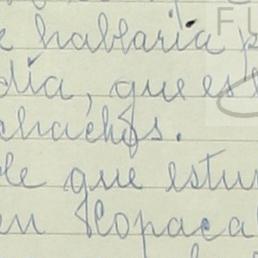 e hablaria p
dia, que es
chachos.
le que estu
en Copaca